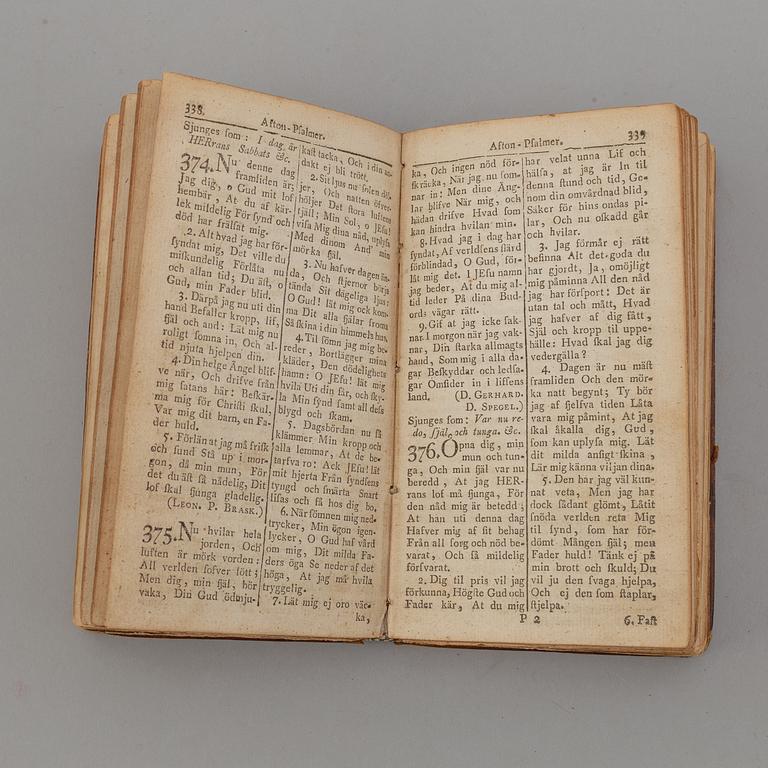 338.
Afton-Psalmer.
Sjunges som: I dag är
HERrans Sabbats &c.
374. Nu denne dag
framliden är;
Jag dig, o Gud mit lof
hembär, At du af kär-
lek mildelig För synd och
död har frälsat mig.
2. Alt hvad jag har för-
syndat mig, Det ville du
miskundelig Förlåta nu
och allan tid; Du äst, o
Gud, min Fader blid.
3. Därpå jag nu uti din
hand Befaller kropp, lif,
själ och and: Låt mig nu
roligt somna in, Och al-
tid njuta hjelpen din.
4. Din helge Ängel blif-
ve när, Och drifve från
mig satans här: Beskär-
ma mig för Christi skul,
Var mig dit barn, en Fa-
der huld.
5. Förlän at jag må frisk
och sund Stå up i mor-
gon, då min mun, För
det du äst så nådelig, Dit
lof skal sjunga gladelig.
(Leon. P. Brask.)
375. Nu hvilar hela
jorden, Och
luften är mörk vorden:
All verlden sofver sött;
Men dig, min själ, bör
vaka, Din Gud ödmju-
kast tacka, Och i din an-
dakt ej bli trött.
2. Sit ljus nu solen döl-
jer, Och natten öfver-
höljer Det stora luftens
tjäll; Min Sol, o JEsu!
visa Mig dina nåd, uplysa
Med dinom And' min
mörka själ.
3. Nu hafver dagen än-
da, Och stjernor börja
tända Sit dägeliga ljus:
O Gud! låt mig ock kom-
ma Dit alla själar froma
Så skina i din himmels hus.
4. Til sömn jag mig be-
reder, Bortlägger mina
kläder, Den dödelighets
hamn: O JEsu! låt mig
hvila Uti din sår, och sky-
la Min synd samt all dess
blygd och skam.
5. Dagsbördan nu så
klämmer Min kropp och
alla lemmar, At de be-
tarfva ro: Ack JEsu! låt
mit hjerta Från syndsens
tyngd och smärta Snart
lisas och så hos dig bo.
6. När sömnen mig ned-
trycker, Min ögon igen-
lycker, O Gud haf vård
om mig, Dit milda Fa-
ders öga Se neder af det
höga, At jag må hvila
tryggelig.
7. Låt mig ej oro väc-
ka,
Afton-Psalmer.
339
ka, Och ingen nöd för-
skräcka, När jag nu som-
nar in: Men dine Äng-
lar blifve När mig, och
hädan drifve Hvad som
kan hindra hvilan min.
8. Hvad jag i dag har
syndat, Af verldsens flärd
förblindad, O Gud, för-
låt mig det. I JEsu namn
jag beder, At du mig al-
tid leder På dina Bud-
ords vägar rätt.
9. Gif at jag icke sak-
nar, I morgon när jag vak-
nar, Din starka allmagts
hand, Som mig i alla da-
gar Beskyddar och ledsa-
gar Omsider in i lifsens
land.
(D. Gerhard.
D. Spegel.)
Sjunges som: Var nu re-
do, själ och tunga. &c.
376. Opna dig, min
mun och tun-
ga, Och min själ var nu
beredd, At jag HER-
rans lof må sjunga, För
den nåd mig är betedd;
At han uti denna dag
Hafver mig af sit behag
Från all sorg och nöd be-
varat, Och så mildelig
försvarat.
2. Dig til pris vil jag
förkunna, Högste Gud och
Fader kär, At du mig
har velat unna Lif och
hälsa, at jag är In til
denna stund och tid, Ge-
nom din omvårdnad blid,
Säker för hins ondas pi-
lar, Och nu oskadd går
och hvilar.
3. Jag förmår ej rätt
besinna Alt det goda du
har gjordt, Ja, omöjligt
mig påminna All den nåd
jag har försport: Det är
utan tal och mått, Hvad
jag hafver af dig fått,
Själ och kropp til uppe-
hälle: Hvad skal jag dig
vedergälla?
4. Dagen är nu mäst
framliden Och den mör-
ka natt begynt; Ty bör
jag af sjelfva tiden Låta
vara mig påmint, At jag
skal åkalla dig, Gud,
som kan uplysa mig. Lät
dit milda ansigt skina,
Lär mig känna viljan dina.
5. Den har jag väl kun-
nat veta, Men jag har
dock sådant glömt, Låtit
snöda verlden reta Mig
til synd, som har för-
dömt Mången själ; men
Fader huld! Tänk ej på
min brott och skuld; Du
vil ju den svaga hjelpa,
Och ej den som staplar,
stjelpa.
P 2
6. Fast